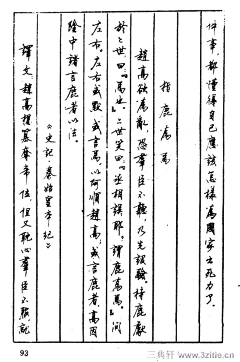 件事,都懂得自己應該怎樣為國家去死力了。
指鹿為馬
趙高欲為亂,恐羣臣不聽,乃先設驗。持鹿獻
於二世曰:『馬也。』二世笑曰:『丞相誤耶?謂鹿為馬。』問
左右。左右或默,或言馬,以阿順趙高;或言鹿者,高因
陰中諸言鹿者以法。
《史記·秦始皇本紀》
譯文:趙高想篡奪帝位,但又耽心羣臣不服,就
93
三典轩 www.3zitie.cn